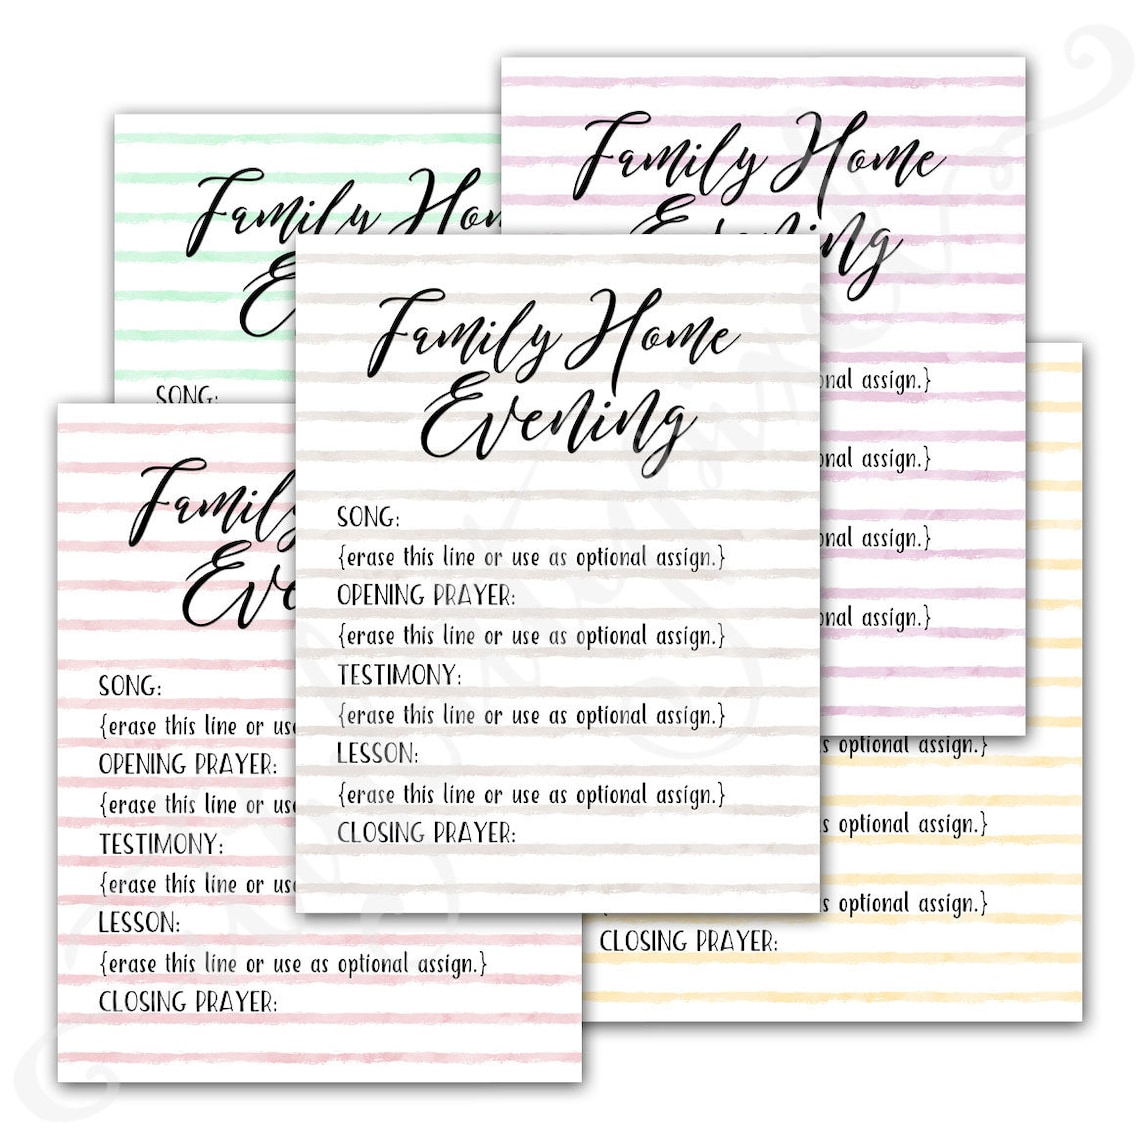 Family Home
Evening
SONG:
Family Home
Evening
onal assign.}
onal assign.}
onal assign.}
onal assign.}
Family Home
Evening
SONG:
{erase this line or use as optional assign.}
OPENING PRAYER:
{erase this line or use as optional assign.}
TESTIMONY:
{erase this line or use as optional assign.}
LESSON:
{erase this line or use as optional assign.}
CLOSING PRAYER:
Family
Eve
SONG:
{erase this line or use
OPENING PRAYER:
{erase this line or use
TESTIMONY:
{erase this line or use
LESSON:
{erase this line or use as optional assign.}
CLOSING PRAYER:
s optional assign.}
s optional assign.}
s optional assign.}
CLOSING PRAYER: